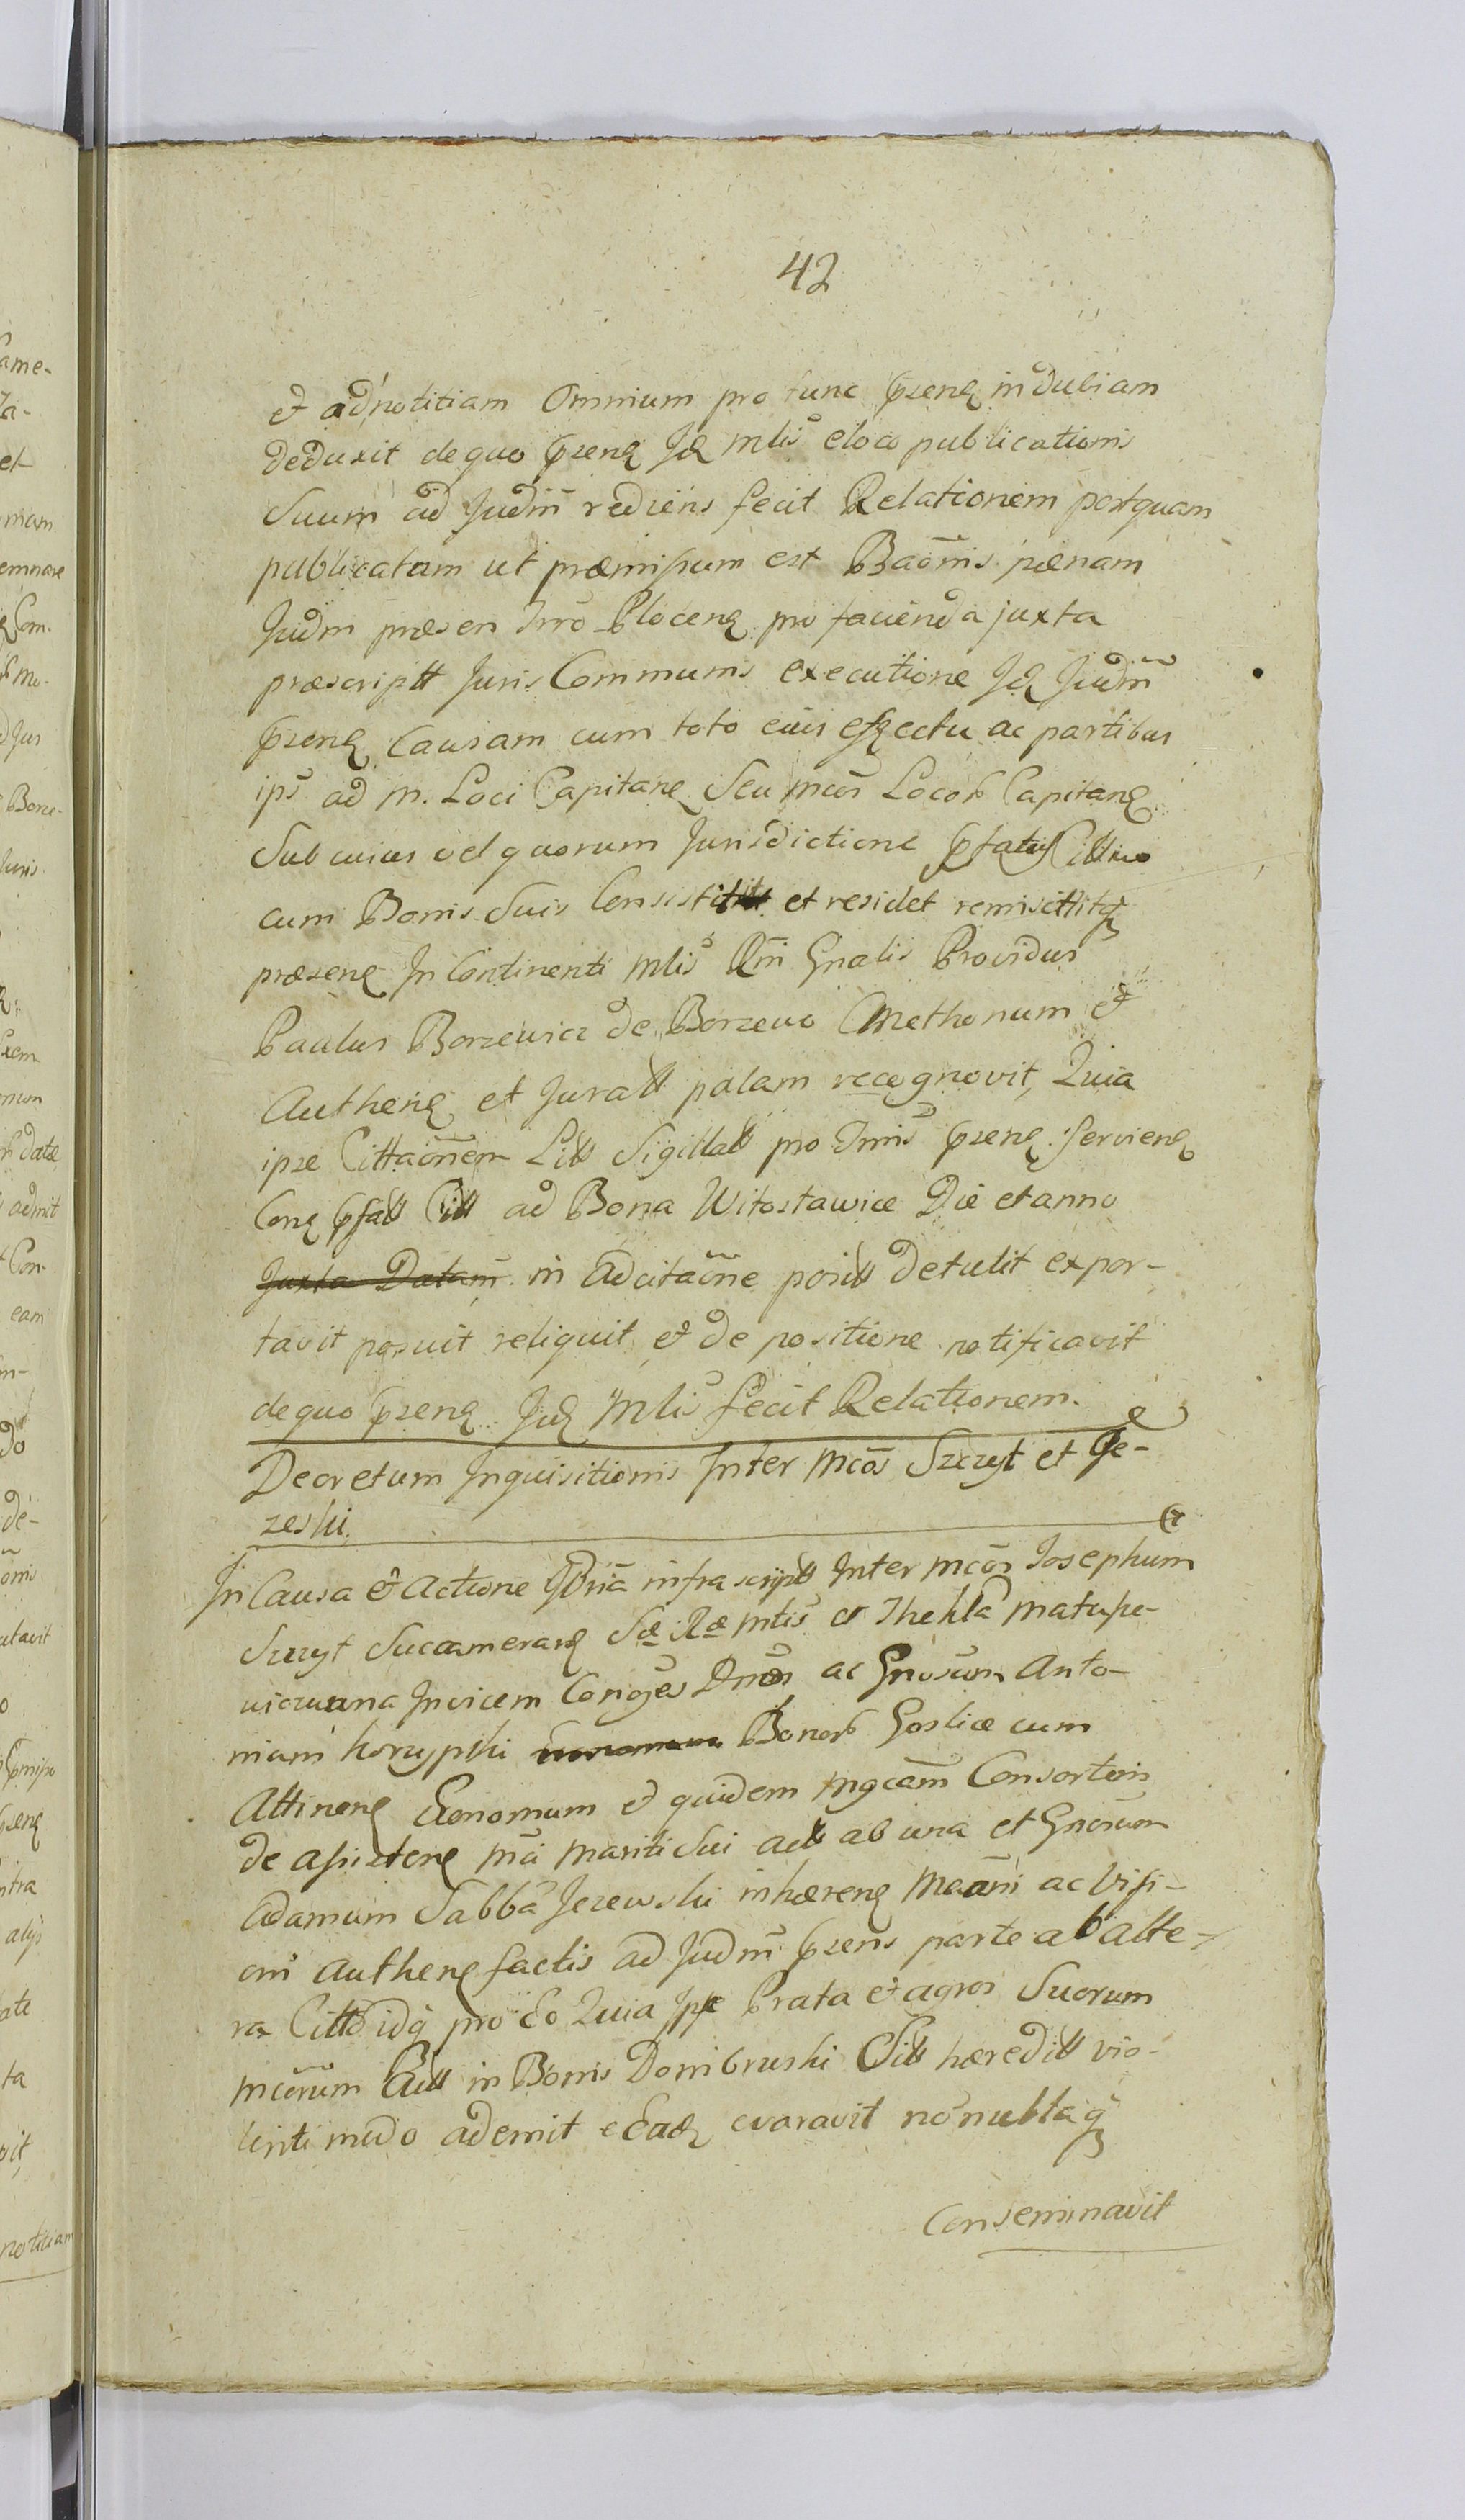 42
et adnotitiam Omnium pro tunc pzenꝫ indubiam
deduxit dequo pzenꝫ Jꝫ Mlis eloco publicationis
Suum ad Judm rediens fecit Relationem postquam
publicatam ut præmissum est Baōnis pænam
Judm præsen Trro Plocenꝫ pro facienda juxta
præscriptt Juris Communis executione Jꝫ Judm
pzenꝫ Causam cum toto eius effectu ac partibus
ips ad M. Loci Capitanꝫ Seu mcos Locorb Capitanꝫ
Sub cuius vel quorum Jurisdictione pfatus
cum Bonis Suis et residet
præsenꝫ In Continenti Mlis Rni Gnalis Providus
Paulus Borzewicz de Borzewo Cmethonum et
Authenꝫ et Juratt palam recognovit, Quia
ipse Cittaōnem Litt Sigillatt pro Tmis pzenꝫ servienꝫ
Conꝫ pfatt Citt ad Bona Witostawice Die et anno
Juxta Datam in Adcitaōne positt detulit expor-
tavit posuit reliquit et de positione notificavit
dequo pzenꝫ Judꝫ Mlis fecit Relationem.
Decretum Inquisitionis Inter Mcos Szczyt et Je-
zeski.
In Causa et Actione infrascriptt Inter Mcos Josephum
Szczyt Succamerarꝫ Sæ Ræ Mtis et Theklã Matuse-
viczuwna Invicem Conjges ac Gnosum Anto-
nium Korzypski Bonorb Goslice cum
Attinenꝫ Economum et quidem Mgcam Consortem
de assistenꝫ mci mariti Sui act ab una et Gnosum
Adamum Sabba Jezewski inhærenꝫ ac Visi-
oni Authenꝫ factis ad Judm pzens parte ab alte-
ra Citto idq pro Eo Quia Ipse Prata et agros Suorum
mcorum Actt in Bonis Dombruski Sitt hæreditt vio-
lenti modo ademit eEadꝫ exaravit nonnullaqꝫ
Conseminavit